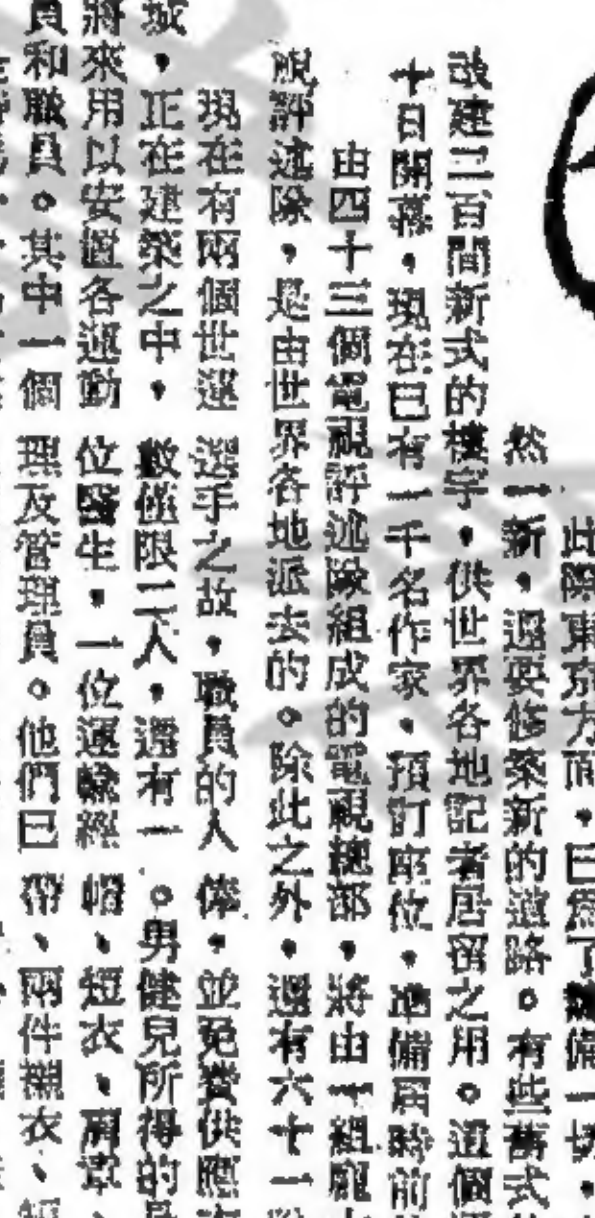 此際東京方面，已為了準備一切，
然一新，還要修築新的道路。有些舊式
改建二百間新式的樓宇，供世界各地記者居留之用。這個
十日開幕，現在已有一千名作家，預訂座位，準備屆時前
由四十三個電視評述隊組成的電視總部，將由一組龐
視評述隊，是由世界各地派去的。除此之外，還有六十一
現在有兩個世運
城，正在建築之中，
將來用以安置各運動
員和職員。其中一個
選手之故，職員的人
數僅限二人，還有一
位醫生，一位運輸經
理及管理員。他們已
俸，並免費供應
。男健兒所得的是
帽、短衣、肩章、
帶、兩件襯衣、